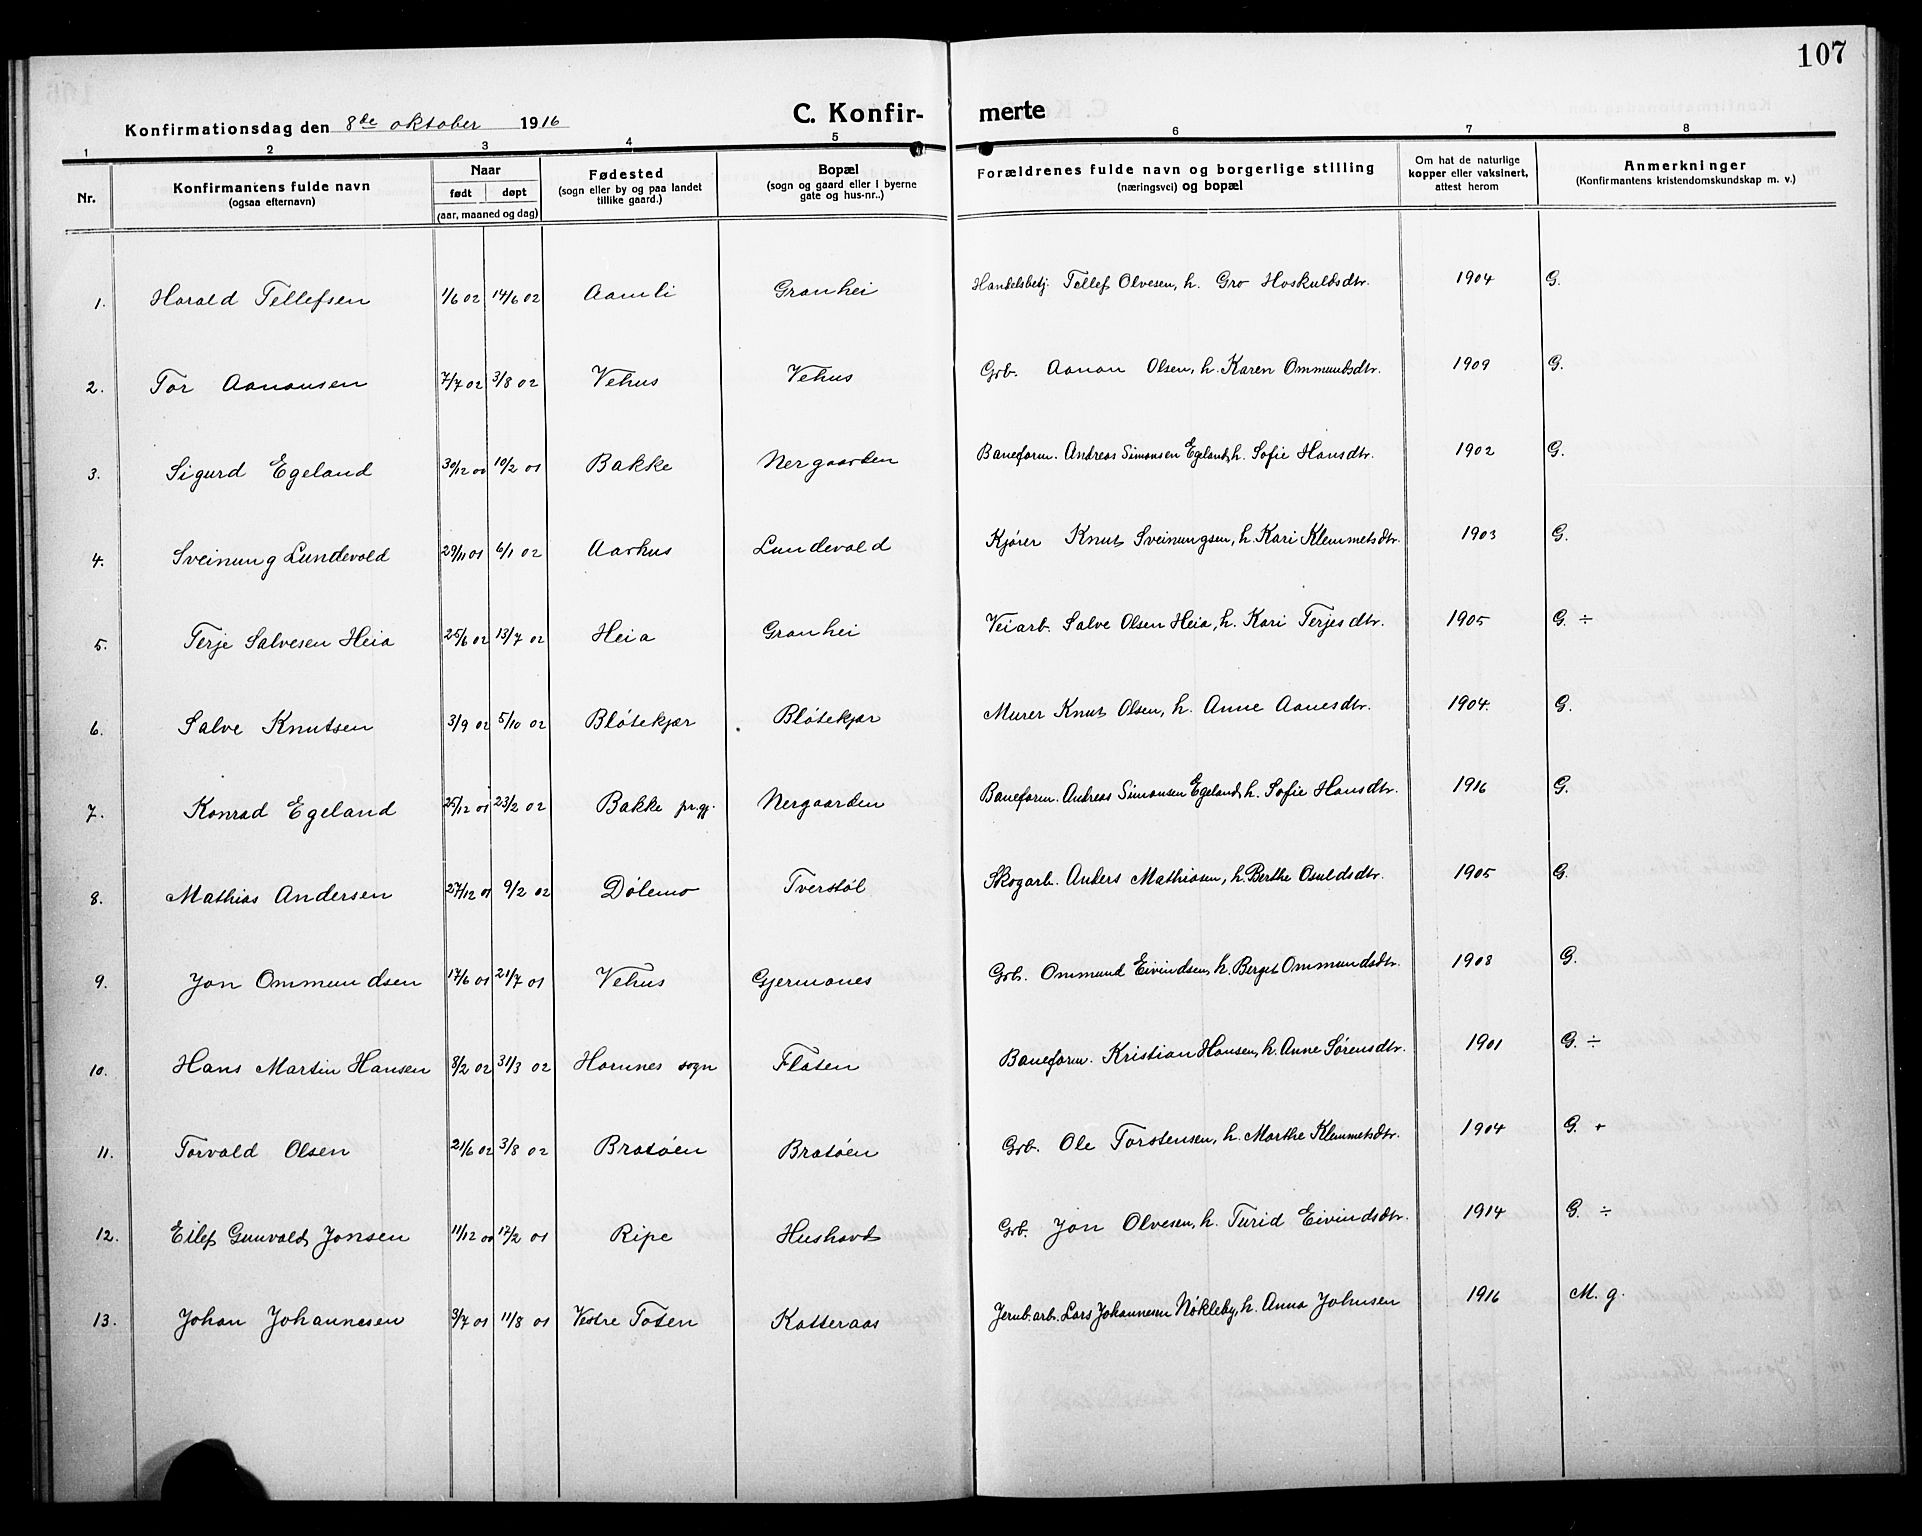 107
C. Konfir- merte
Konfirmationsdag den 8de oktober 1916
1 2 3 4 5 6 7 8
Nr.
Konfirmantens fulde navn
(ogsaa efternavn)
Naar
født døpt
(aar, maaned og dag)
Fødested
(sogn eller by og paa landet
tillike gaard.)
Bopæl
(sogn og gaard eller i byerne
gate og hus-nr..)
Forældrenes fulde navn og borgerlige stilling
(næringsvei) og bopæl
Om hat de naturlige
kopper eller vaksinert,
attest herom
Anmerkninger
(Konfirmantens kristendomskundskap m. v.)
1. Harald Tellefsen 1/6 02 14/6 02 Aamli Granhei Handelsbetj. Tellef Olvesen, h. Gro Hoskuldsdtr. 1904 G.
2. Tor Aanonsen 7/7 02 3/8 02 Vehus Vehus Grb. Aanon Olsen, h. Karen Ommundsdtr. 1909 G.
3. Sigurd Egeland 30/12 00 10/2 01 Bakke Nergaarden Baneform. Andreas Simonsen Egeland, h. Sofie Hansdtr. 1902 G.
4. Sveinung Lundevold 29/11 01 6/1 02 Aarhus Lundevold Kjører Knut Sveinungsen, h. Kari Klemmetsdtr. 1903 G.
5. Terje Salvesen Heia 25/6 02 13/7 02 Heia Granhei Veiarb. Salve Olsen Heia, h. Kari Terjesdtr. 1905 G. ÷
6. Salve Knutsen 3/9 02 5/10 02 Bløtekjær Bløtekjær Murer Knut Olsen, h. Anne Aanesdtr. 1904. G.
7. Konrad Egeland 25/12 01 23/2 02 Bakke pr.gj. Nergaarden Baneform. Andreas Simonsen Egeland, h. Sofie Hansdtr. 1916 G.
8. Mathias Andersen 27/12 01 9/2 02 Dølemo Tverstøl Skogarb. Anders Mathiasen, h. Berthe Osuldsdtr. 1905 G.
9. Jon Ommundsen 17/6 01 21/7 01 Vehus Gjermanes Grb. Ommund Eivindsen, h. Berget Ommundsdtr. 1908 G.
10. Hans Martin Hansen 8/2 02 31/3 02 Hornnes sogn Flaten Baneform. Kristian Hansen, h. Anne Sørensdtr. 1901 G. ÷
11. Torvald Olsen 21/6 02 3/8 02 Bratøen Bratøen Grb. Ole Torstensen, h. Marthe Klemmetsdtr. 1904 G. +
12. Eilef Gunvald Jonsen 11/12 00 17/2 01 Ripe Hushovd Grb. Jon Olvesen, h. Turid Eivindsdtr. 1914 G. ÷
13. Johan Johannesen 3/7 01 11/8 01 Vestre Toten Katteraas Jernb.arb. Lars Johannesen Nøkleby, h. Anna Johnsen 1916 M. g.